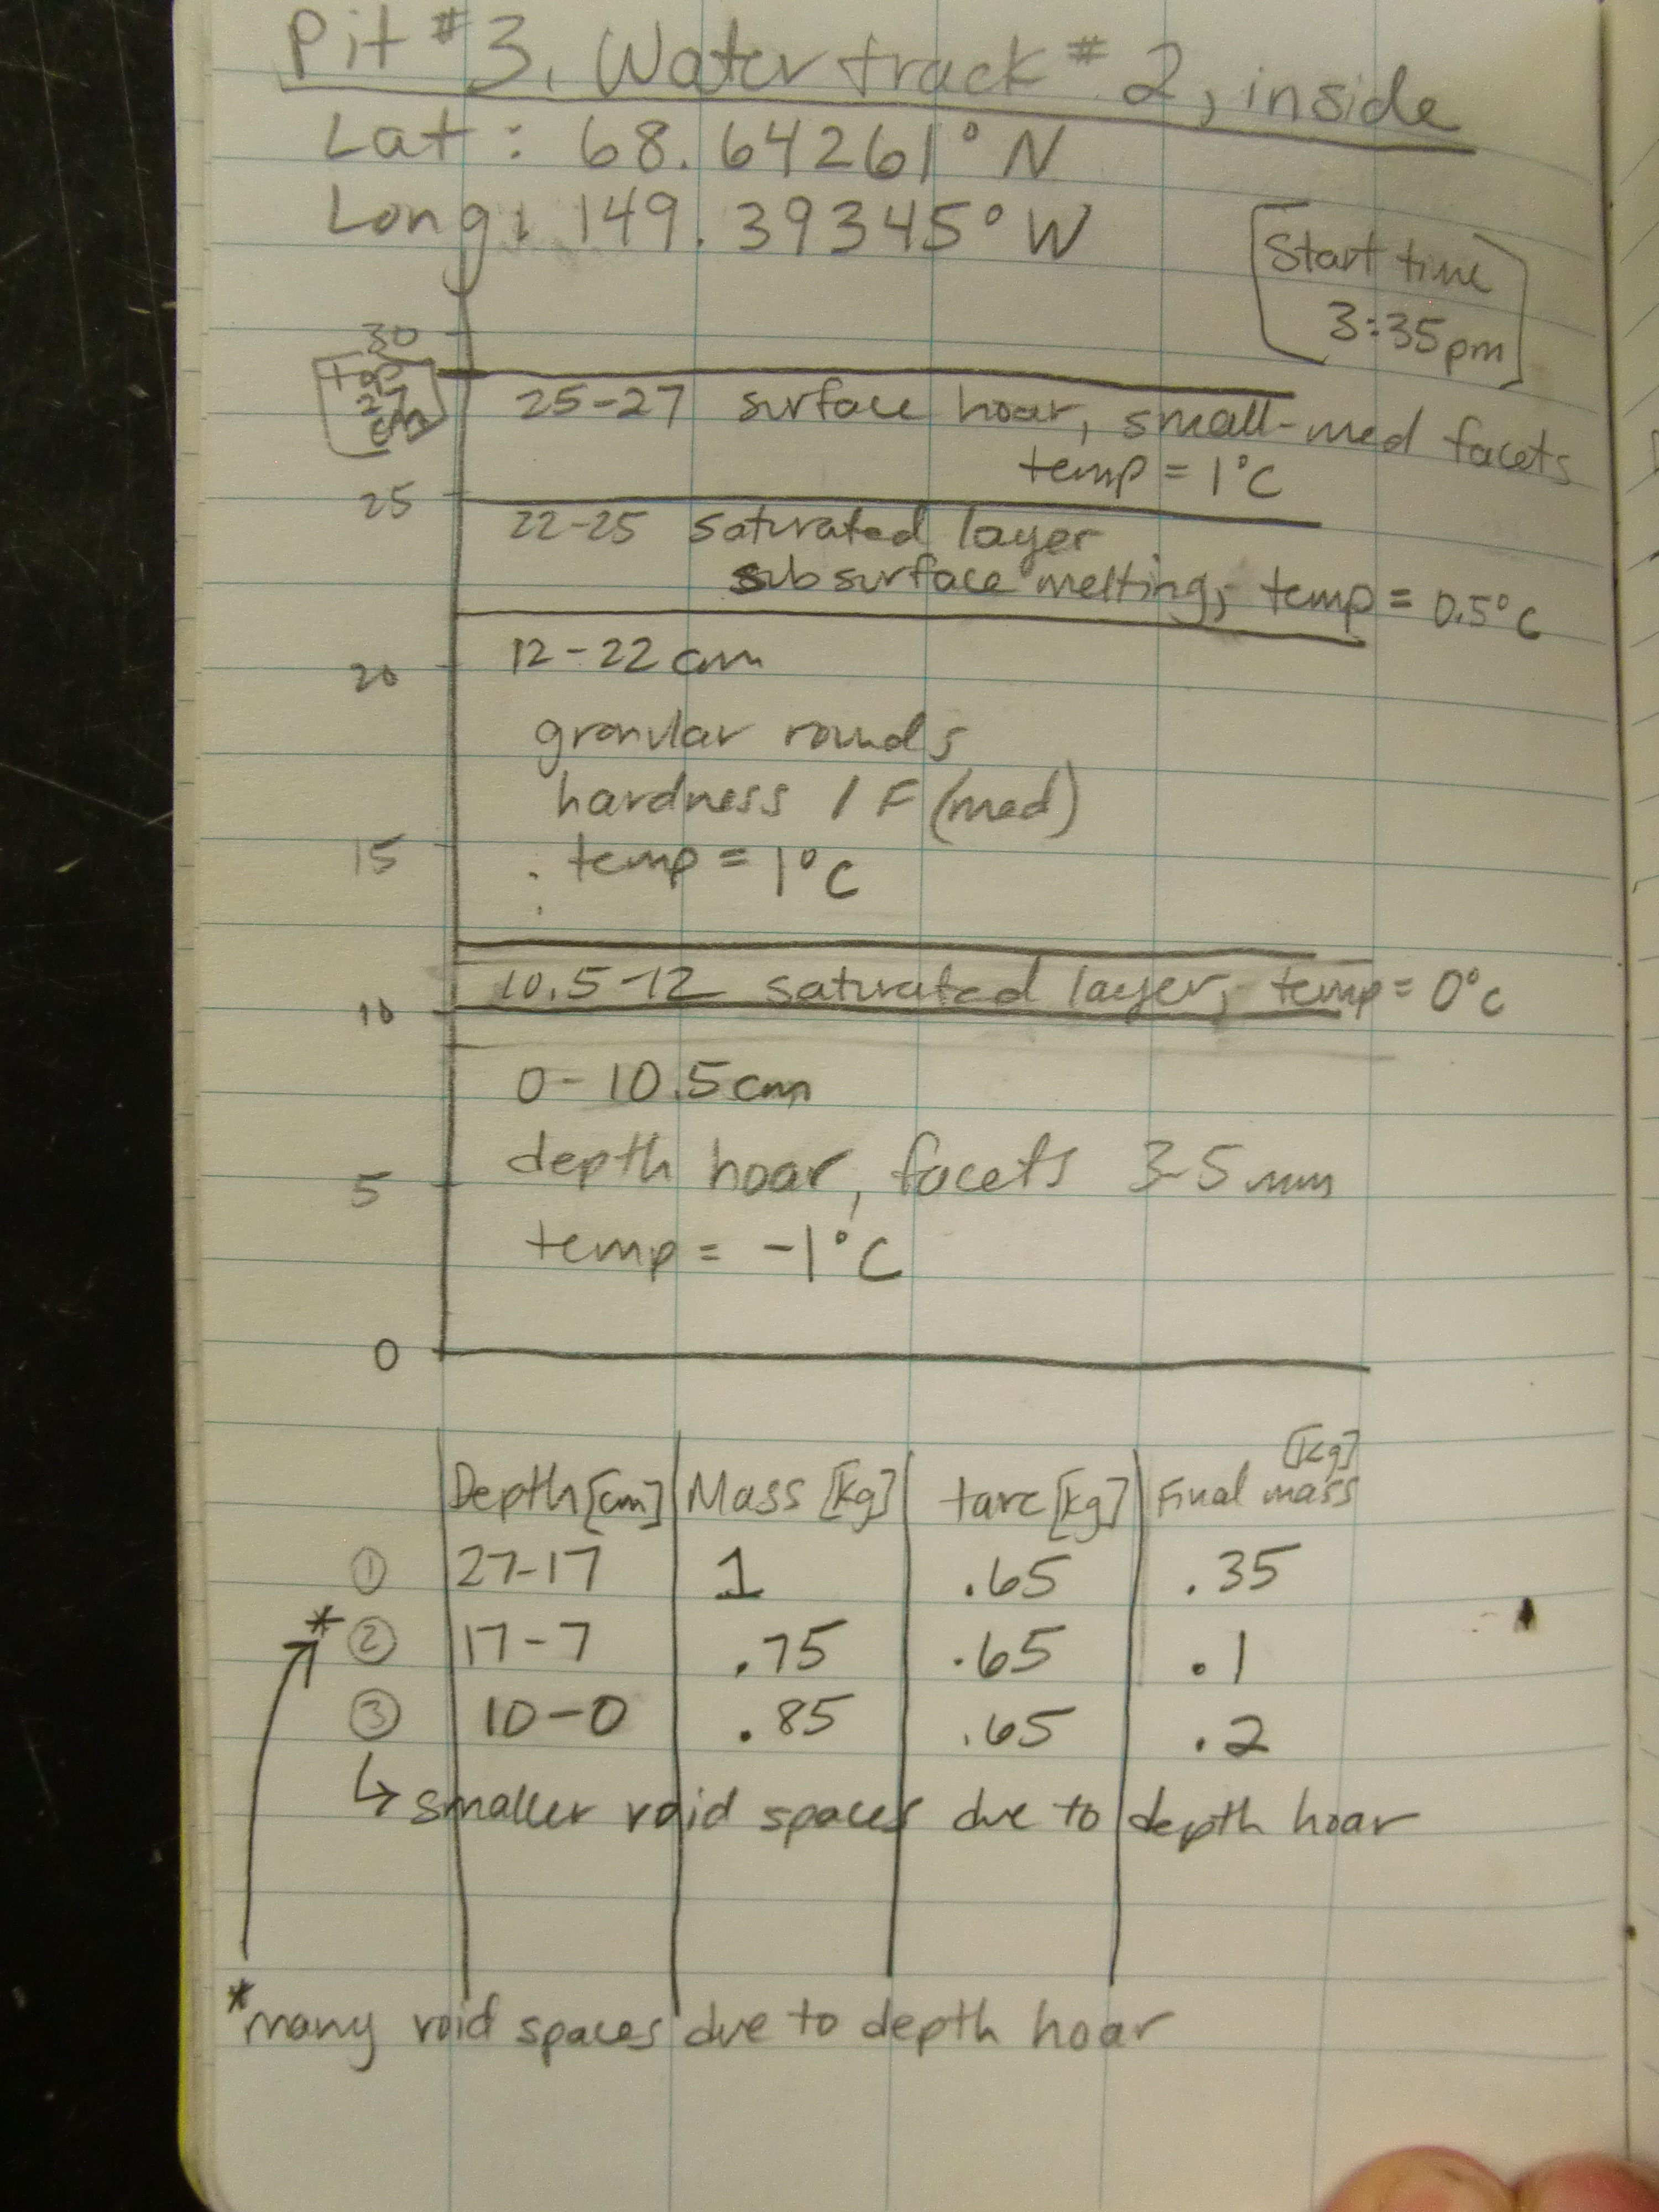 Pit #3, Water track #2, inside
Lat: 68.64261° N
Long: 149.39345° W
[Start time
3:35pm]
30
Top
27
cm
25-27 surface hoar, small-med facets
temp = 1°C
25
22-25 saturated layer
subsurface melting, temp = 0.5°C
12-22 cm
20
granular rounds
hardness 1F (med)
15
temp = 1°C
10.5-12 saturated layer, temp = 0°C
10
0-10.5cm
depth hoar, facets 3-5mm
5
temp = -1°C
0
Depth [cm] Mass [kg] tare [kg] Final mass [kg]
① 27-17 1 .65 .35
* ② 17-7 .75 .65 .1
③ 10-0 .85 .65 .2
↳ smaller void spaces due to depth hoar
*many void spaces due to depth hoar